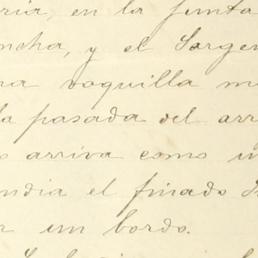 en la junta
ncha, y el Sargen
na vaquilla m
la pasada del arr
arriva como un
ndia el finado
r un bordo.